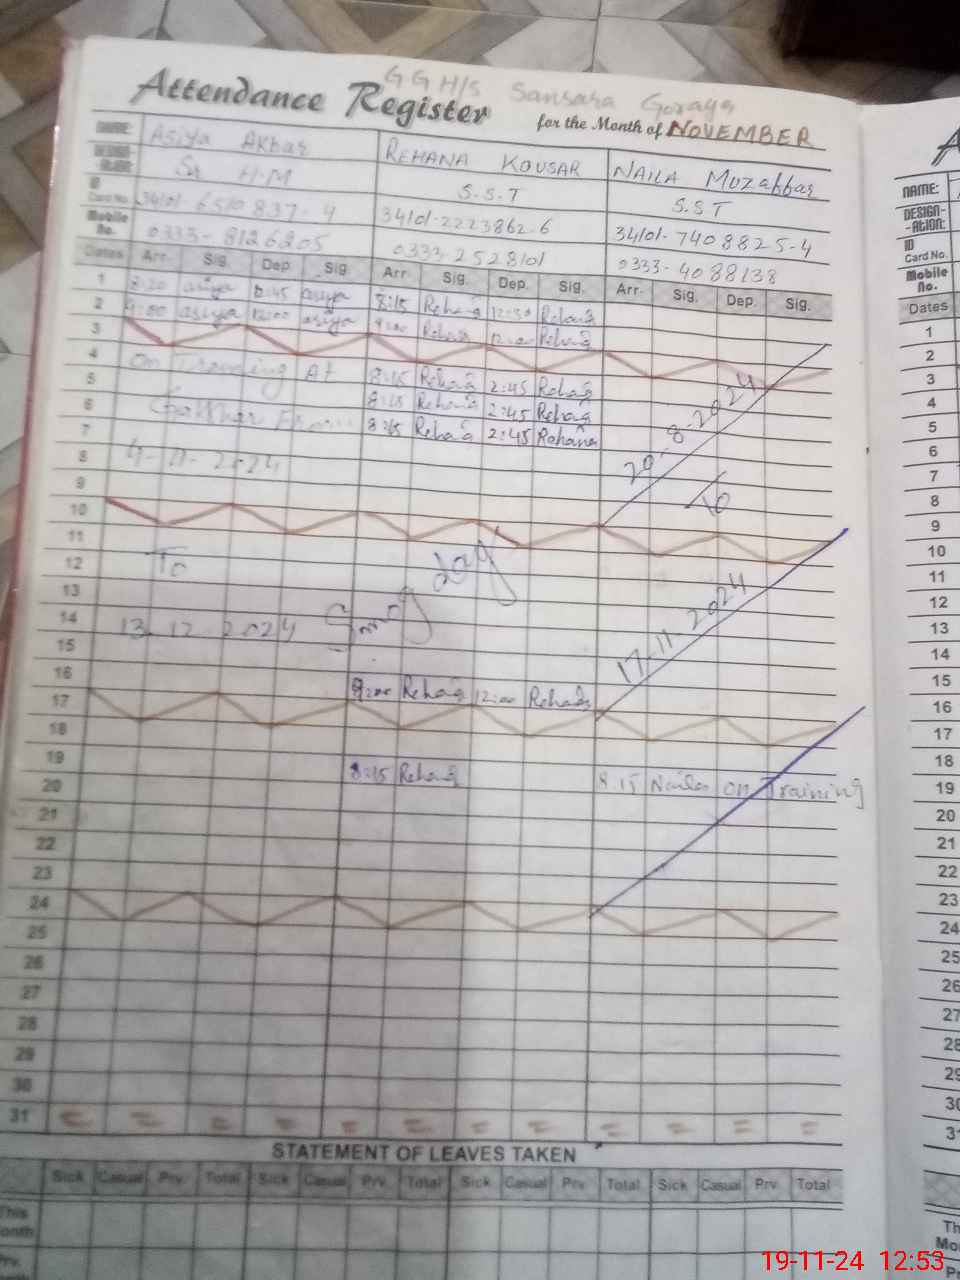 GGH/S Sansara Goraya
Attendance Register for the Month of NOVEMBER
NAME: Asiya Akhar REHANA KOUSAR NAILA Muzabbar
Sr H.M S.S.T S.S.T
ID Card No. 34101-6510837-4 34101-2223862-6 34101-7408825-4
Mobile No. 0333-8126205 0333-2528101 0333-4088138
Dates Arr. Sig. Dep. Sig. Arr. Sig. Dep. Sig. Arr. Sig. Dep. Sig.
1 8:20 asiya asiya 8:15 Rehana 12:30 Rehana
2 9:00 asiya 12:00 asiya 9:00 Rehana 12:00 Rehana
3
4 On At 8:15 Rehana 2:45 Rehana
5 8:15 Rehana 2:45 Rehana
6 8:15 Rehana 2:45 Rehana
7 29-8-2024
8 4-11-2024
9 To
10
11
12 To Smog day
13
14 13.12.2024 17-11-2024
15
16 9:00 Rehana 12:00 Rehana
17
18
19 8:15 Rehana 8.15 Naila on Training
20
21
22
23
24
25
26
27
28
29
30
31
STATEMENT OF LEAVES TAKEN
Sick Casual Prv. Total Sick Casual Prv. Total Sick Casual Prv. Total Sick Casual Prv. Total
This
Prv.
A
NAME:
DESIGN-
-ATION:
ID
Card No.
Mobile
No.
Dates
1
2
3
4
5
6
7
8
9
10
11
12
13
14
15
16
17
18
19
20
21
22
23
24
25
26
27
28
29
30
31
Th
Mo
19-11-24 12:53